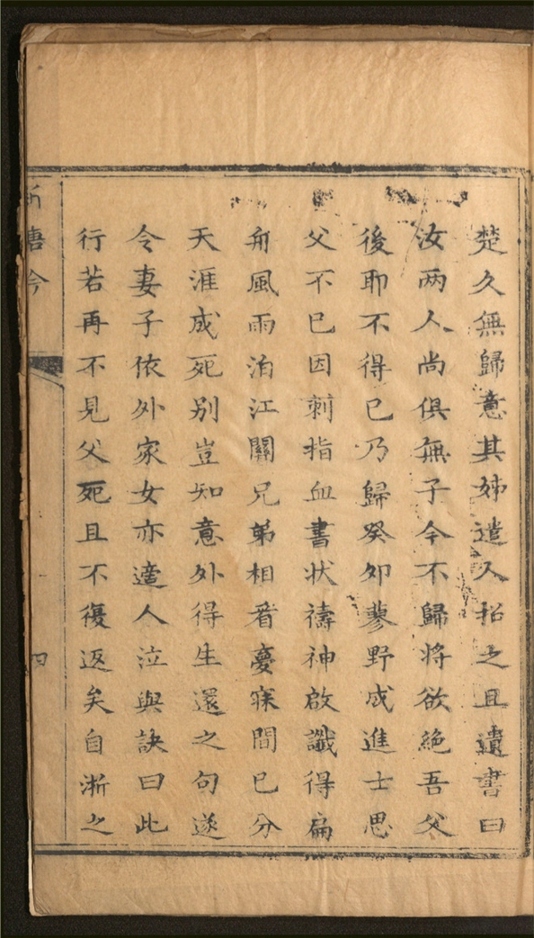 楚久無歸意其姊遣人招之且遺書曰
汝两人尚俱無子今不歸將欲絶吾父
後耶不得已乃歸癸夘蓼野成進士思
父不已因刺指血書状禱神啟讖得扁
舟風雨泊江關兄弟相看慶寐間已分
天涯成死别豈知意外得生還之句遂
令妻子依外家女亦適人泣與訣曰此
行若再不見父死且不復返矣自浙之
唐今
四